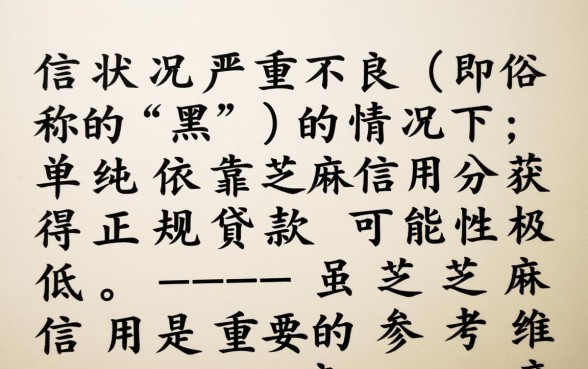 信状况严重不良（即俗
称的“黑”）的情况下；
单纯依靠芝麻信用分获
得正规貸款 可能性极
低。———— 虽芝芝麻
信用是重要的参考维